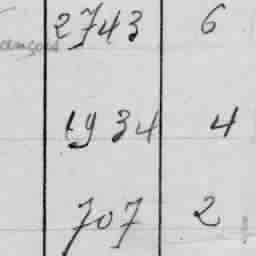 2743 6
1934 4
707 2